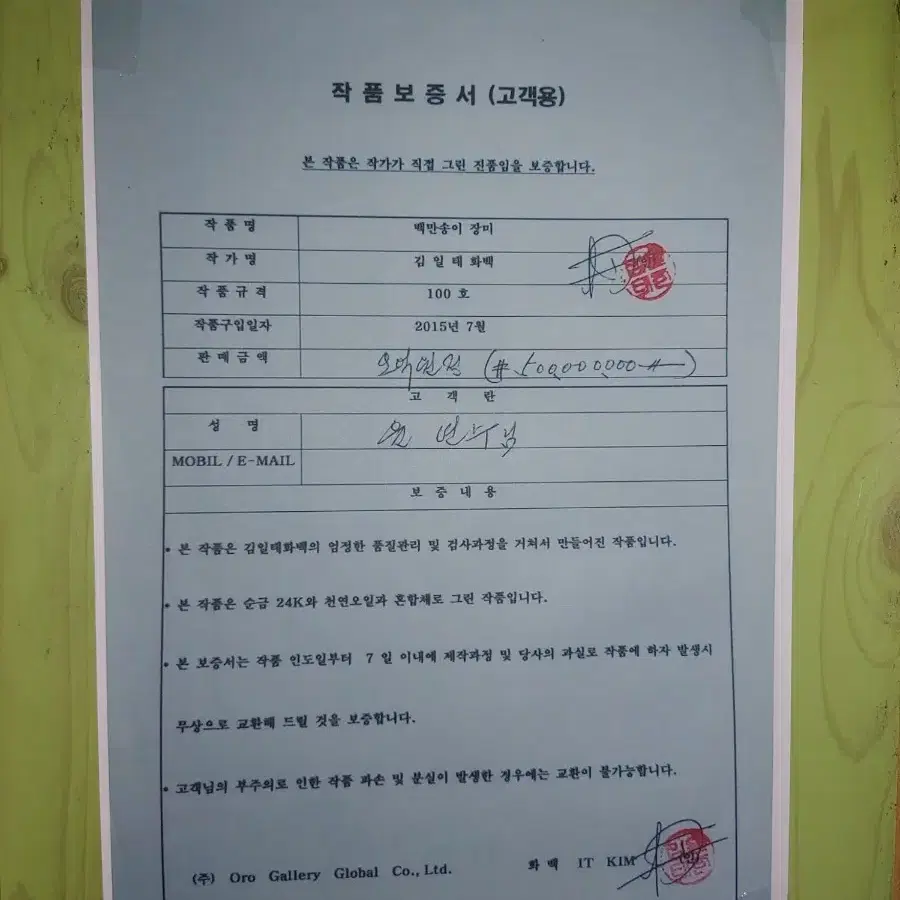 작품보증서 (고객용)
본 작품은 작가가 직접 그린 진품임을 보증합니다.
작 품 명 백만송이 장미
작 가 명 김 일 태 화백
작 품 규 격 100 호
작품구입일자 2015년 7월
판 매 금 액 오억원정 (# 500,000,000 #)
고 객 란
성 명 님
MOBIL / E-MAIL
보 증 내 용
• 본 작품은 김일태화백의 엄정한 품질관리 및 검사과정을 거쳐서 만들어진 작품입니다.
• 본 작품은 순금 24K와 천연오일과 혼합체로 그린 작품입니다.
• 본 보증서는 작품 인도일부터 7 일 이내에 제작과정 및 당사의 과실로 작품에 하자 발생시
무상으로 교환해 드릴 것을 보증합니다.
• 고객님의 부주의로 인한 작품 파손 및 분실이 발생한 경우에는 교환이 불가능합니다.
(주) Oro Gallery Global Co., Ltd. 화 백 IT KIM